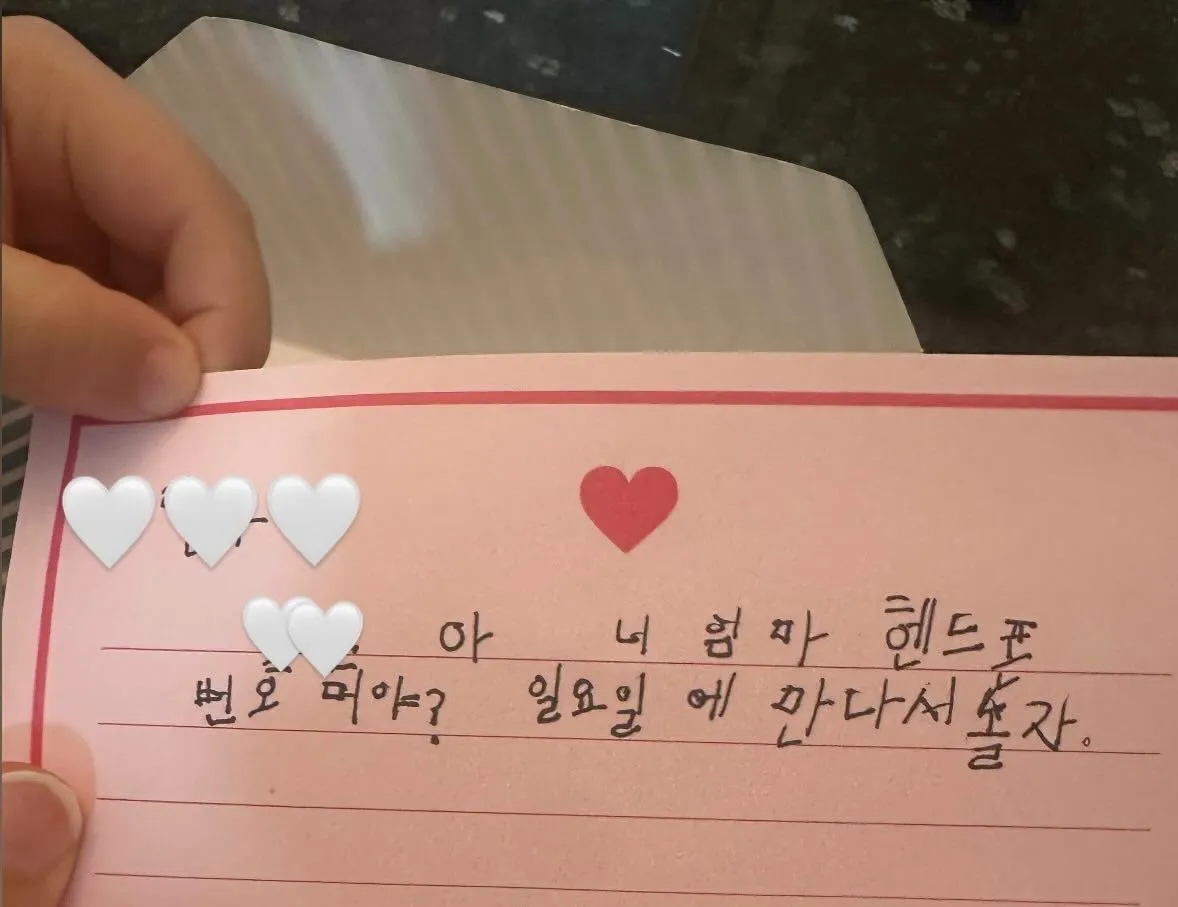 아 너 엄마 헨드폰
번호 머야? 일요일 에 만나서 놀자.